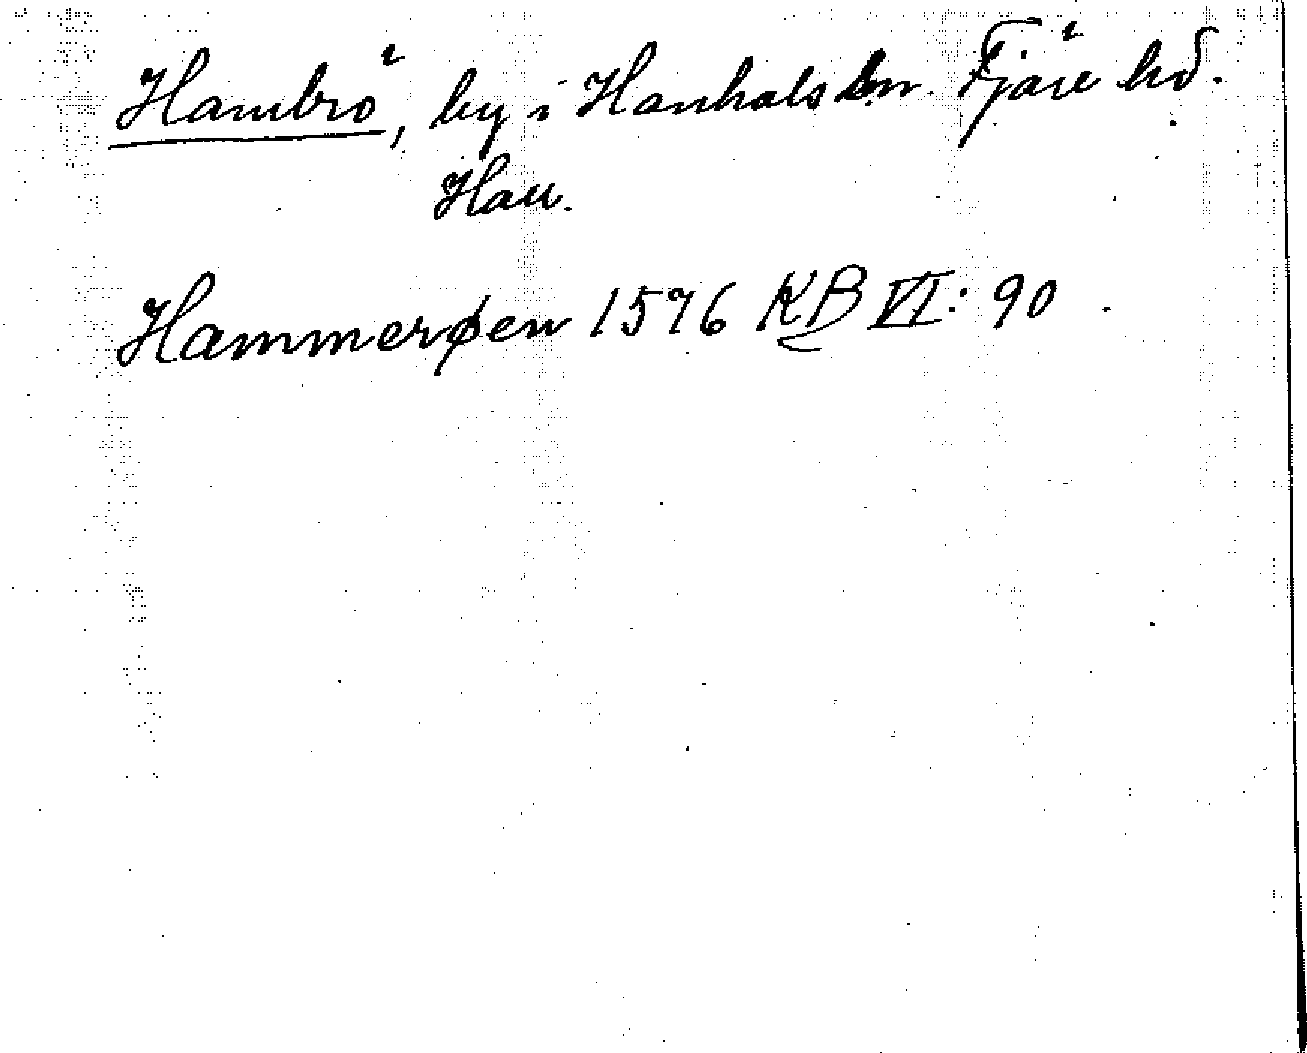 Hambrö, by i Hanhals sn. Fjäre hd.
Hall.
Hammerøen 1576 KB VI: 90